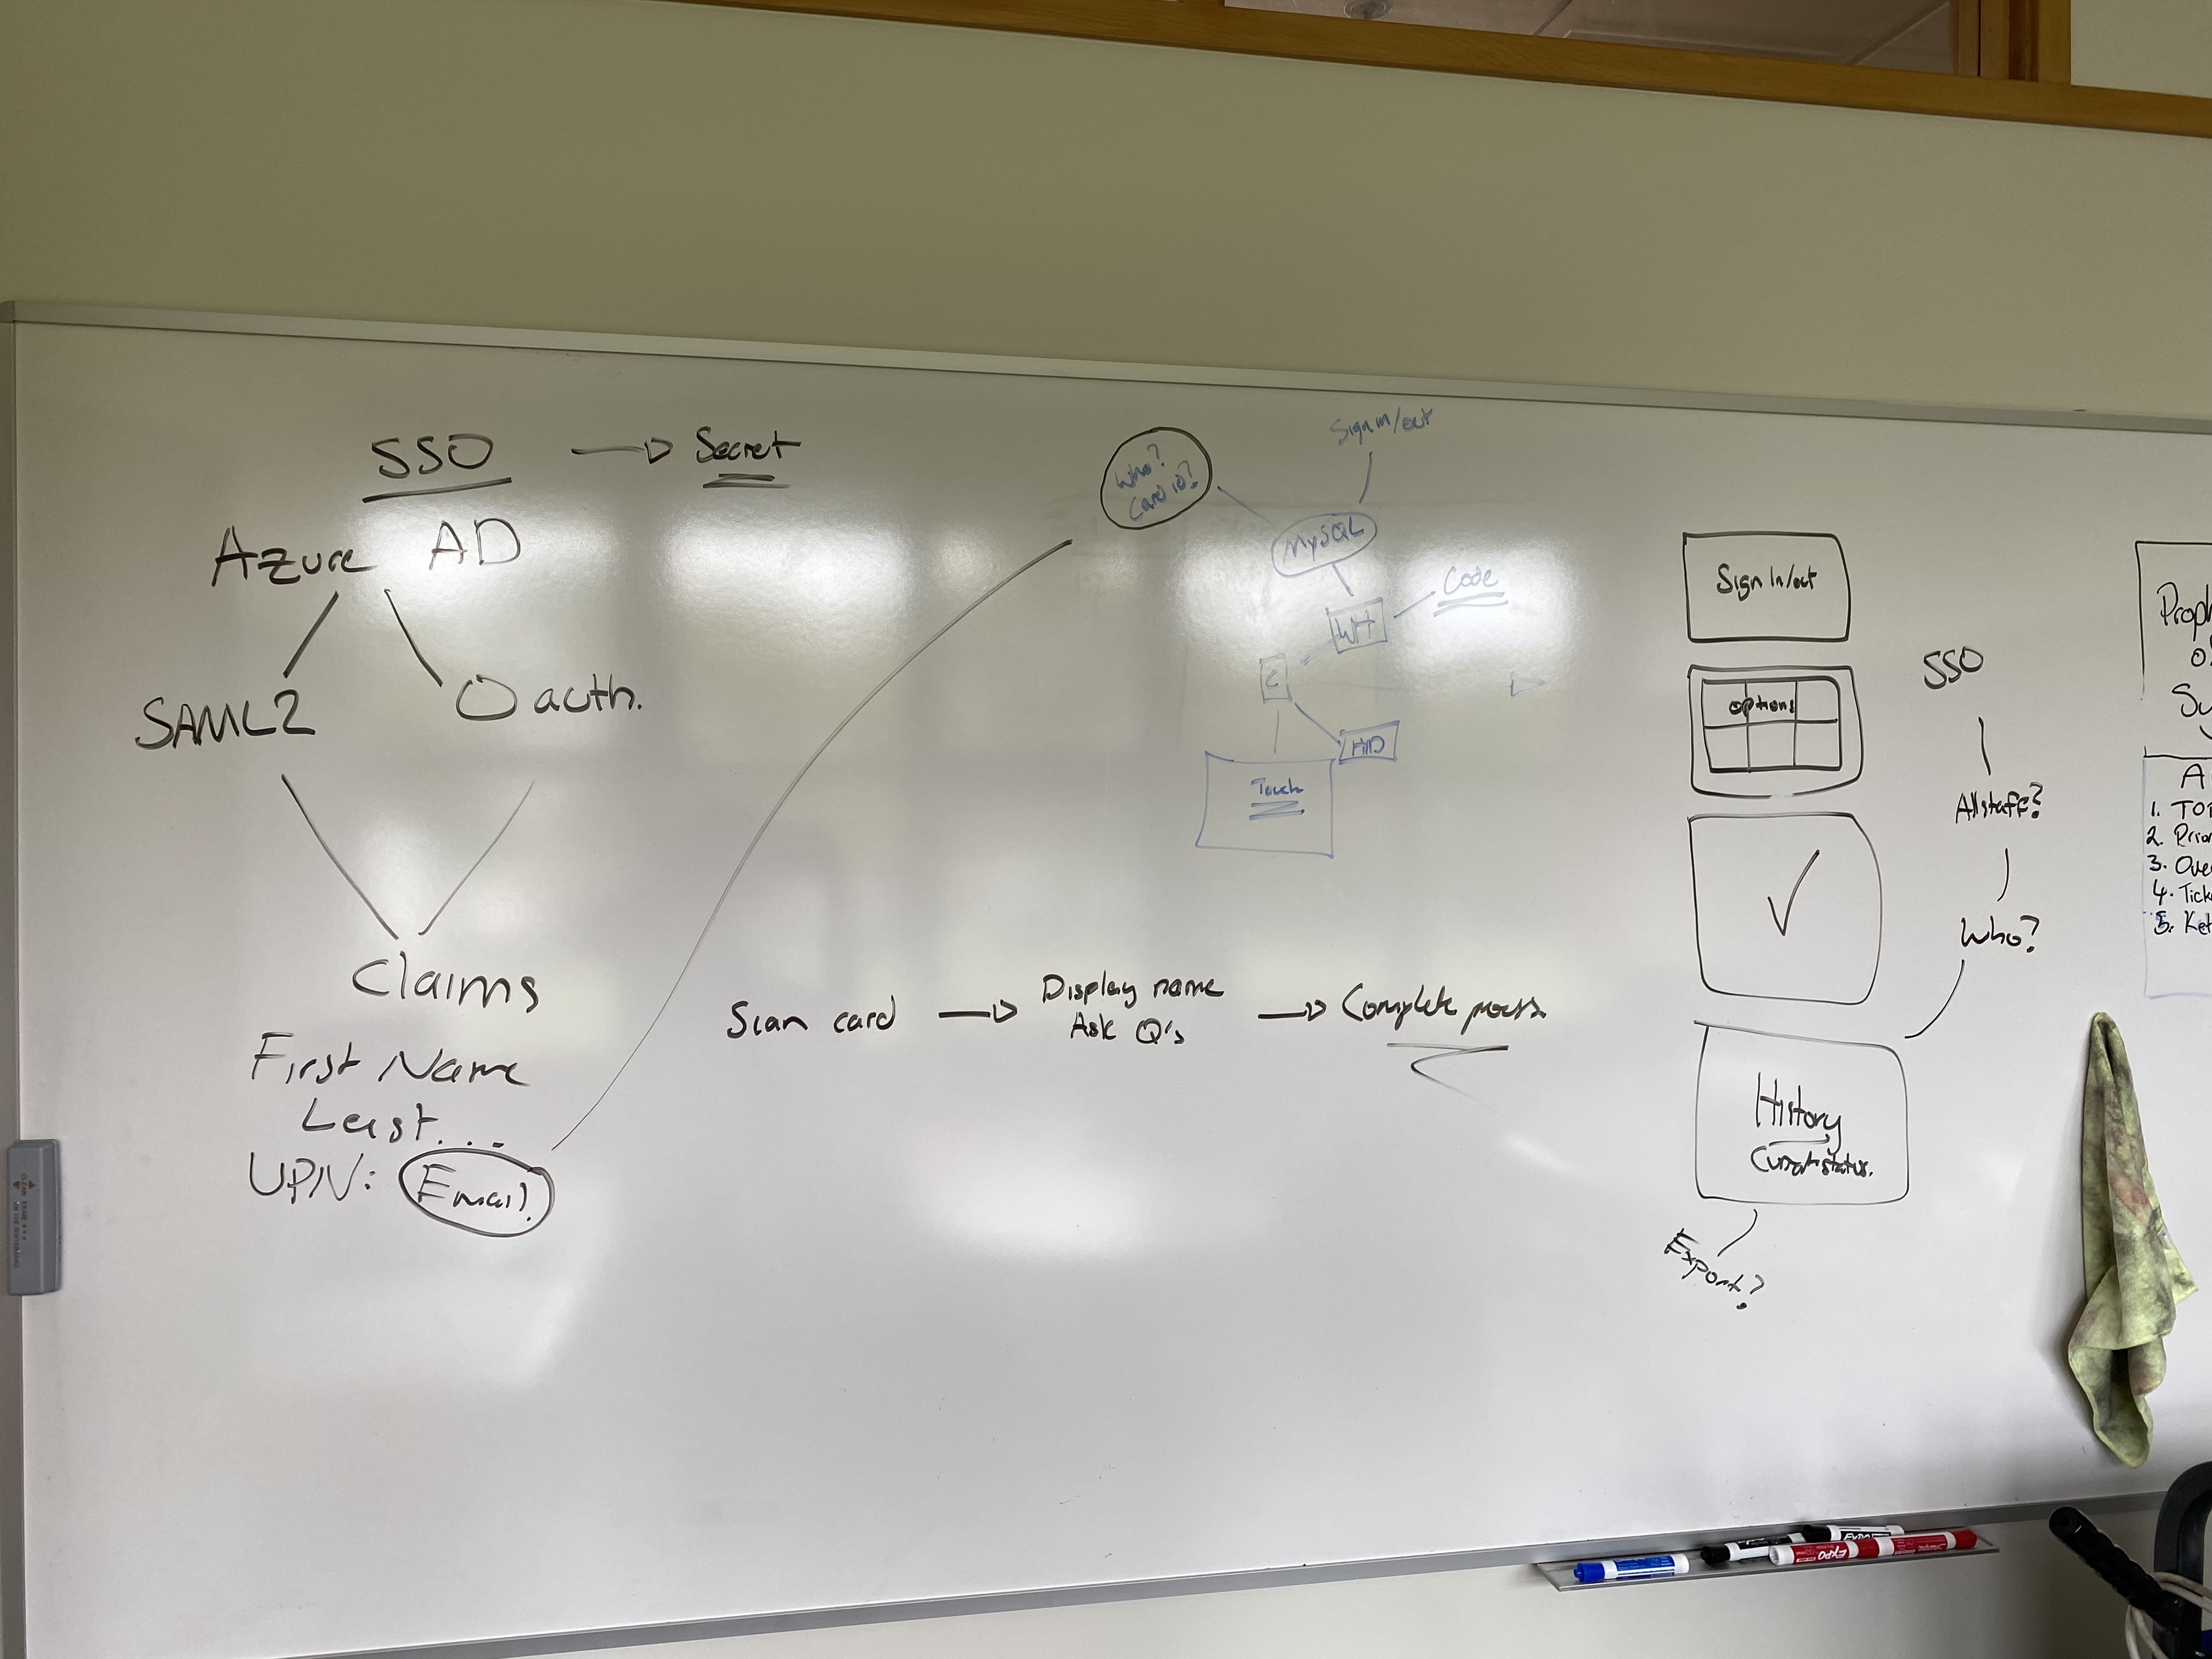 SSO → Secret
Azure AD
SAML2
Oauth.
Claims
First Name
Last...
UPN: Email.
Who?
Card ID?
Sign in/out
MySQL
Code
WH
C
HID
Touch
Scan card → Display name
Ask Q's
→ Complete process.
Sign In/out
options
History
Current status.
Export?
SSO
All staff?
Who?
A
1.
2.
3.
4.
5.
EXPO
EXPO